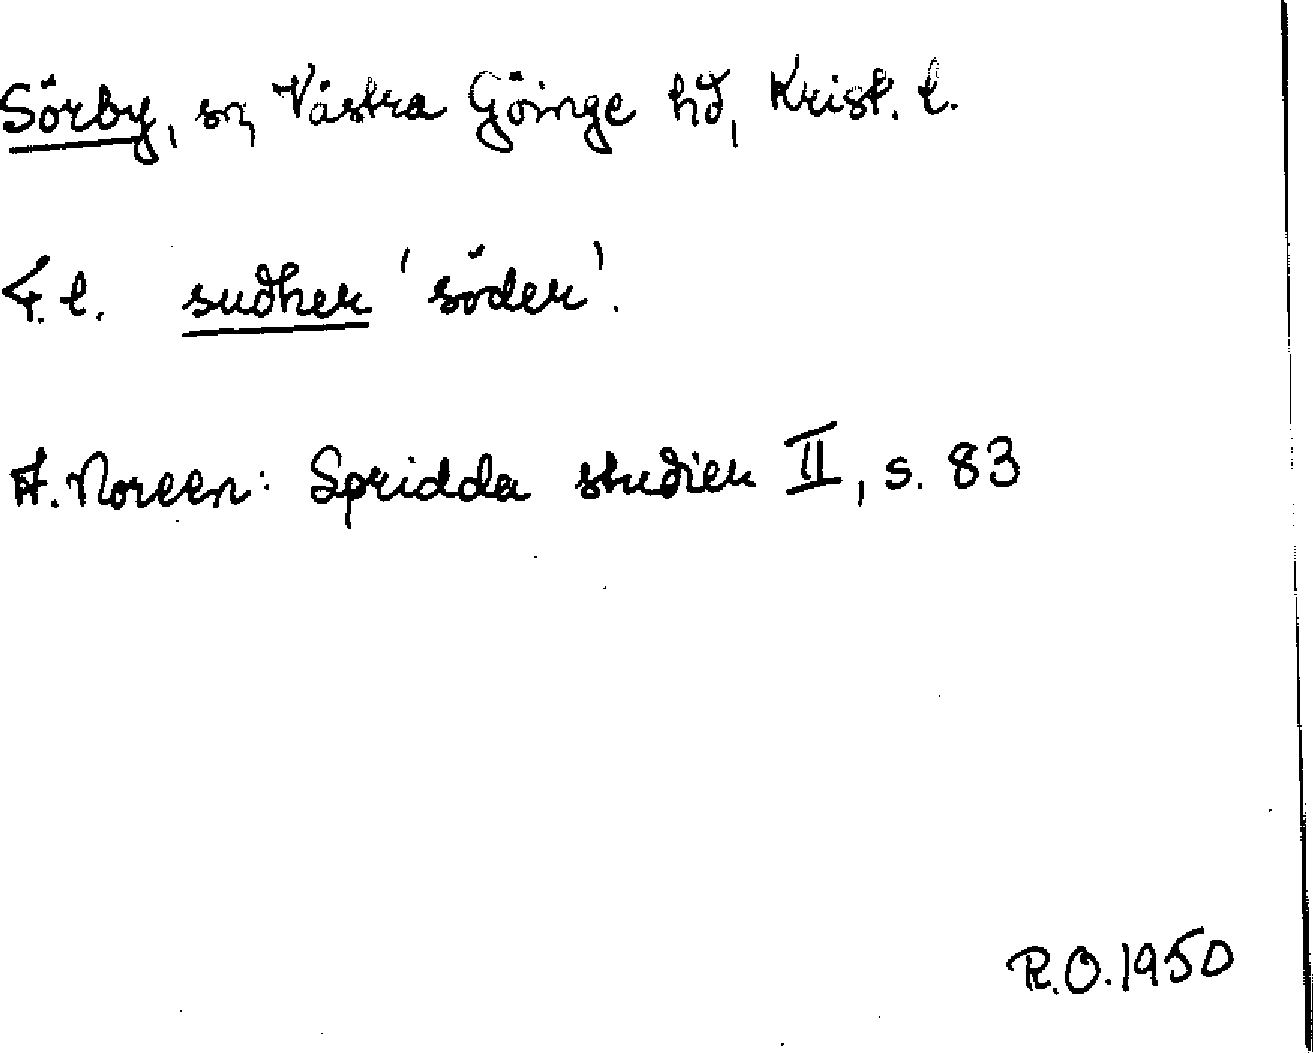 Sörby, sn, Västra Göinge hd, Krist. l.
F. l. sudher 'söder'.
A. Noreen: Spridda studier II, s. 83
R.O. 1950